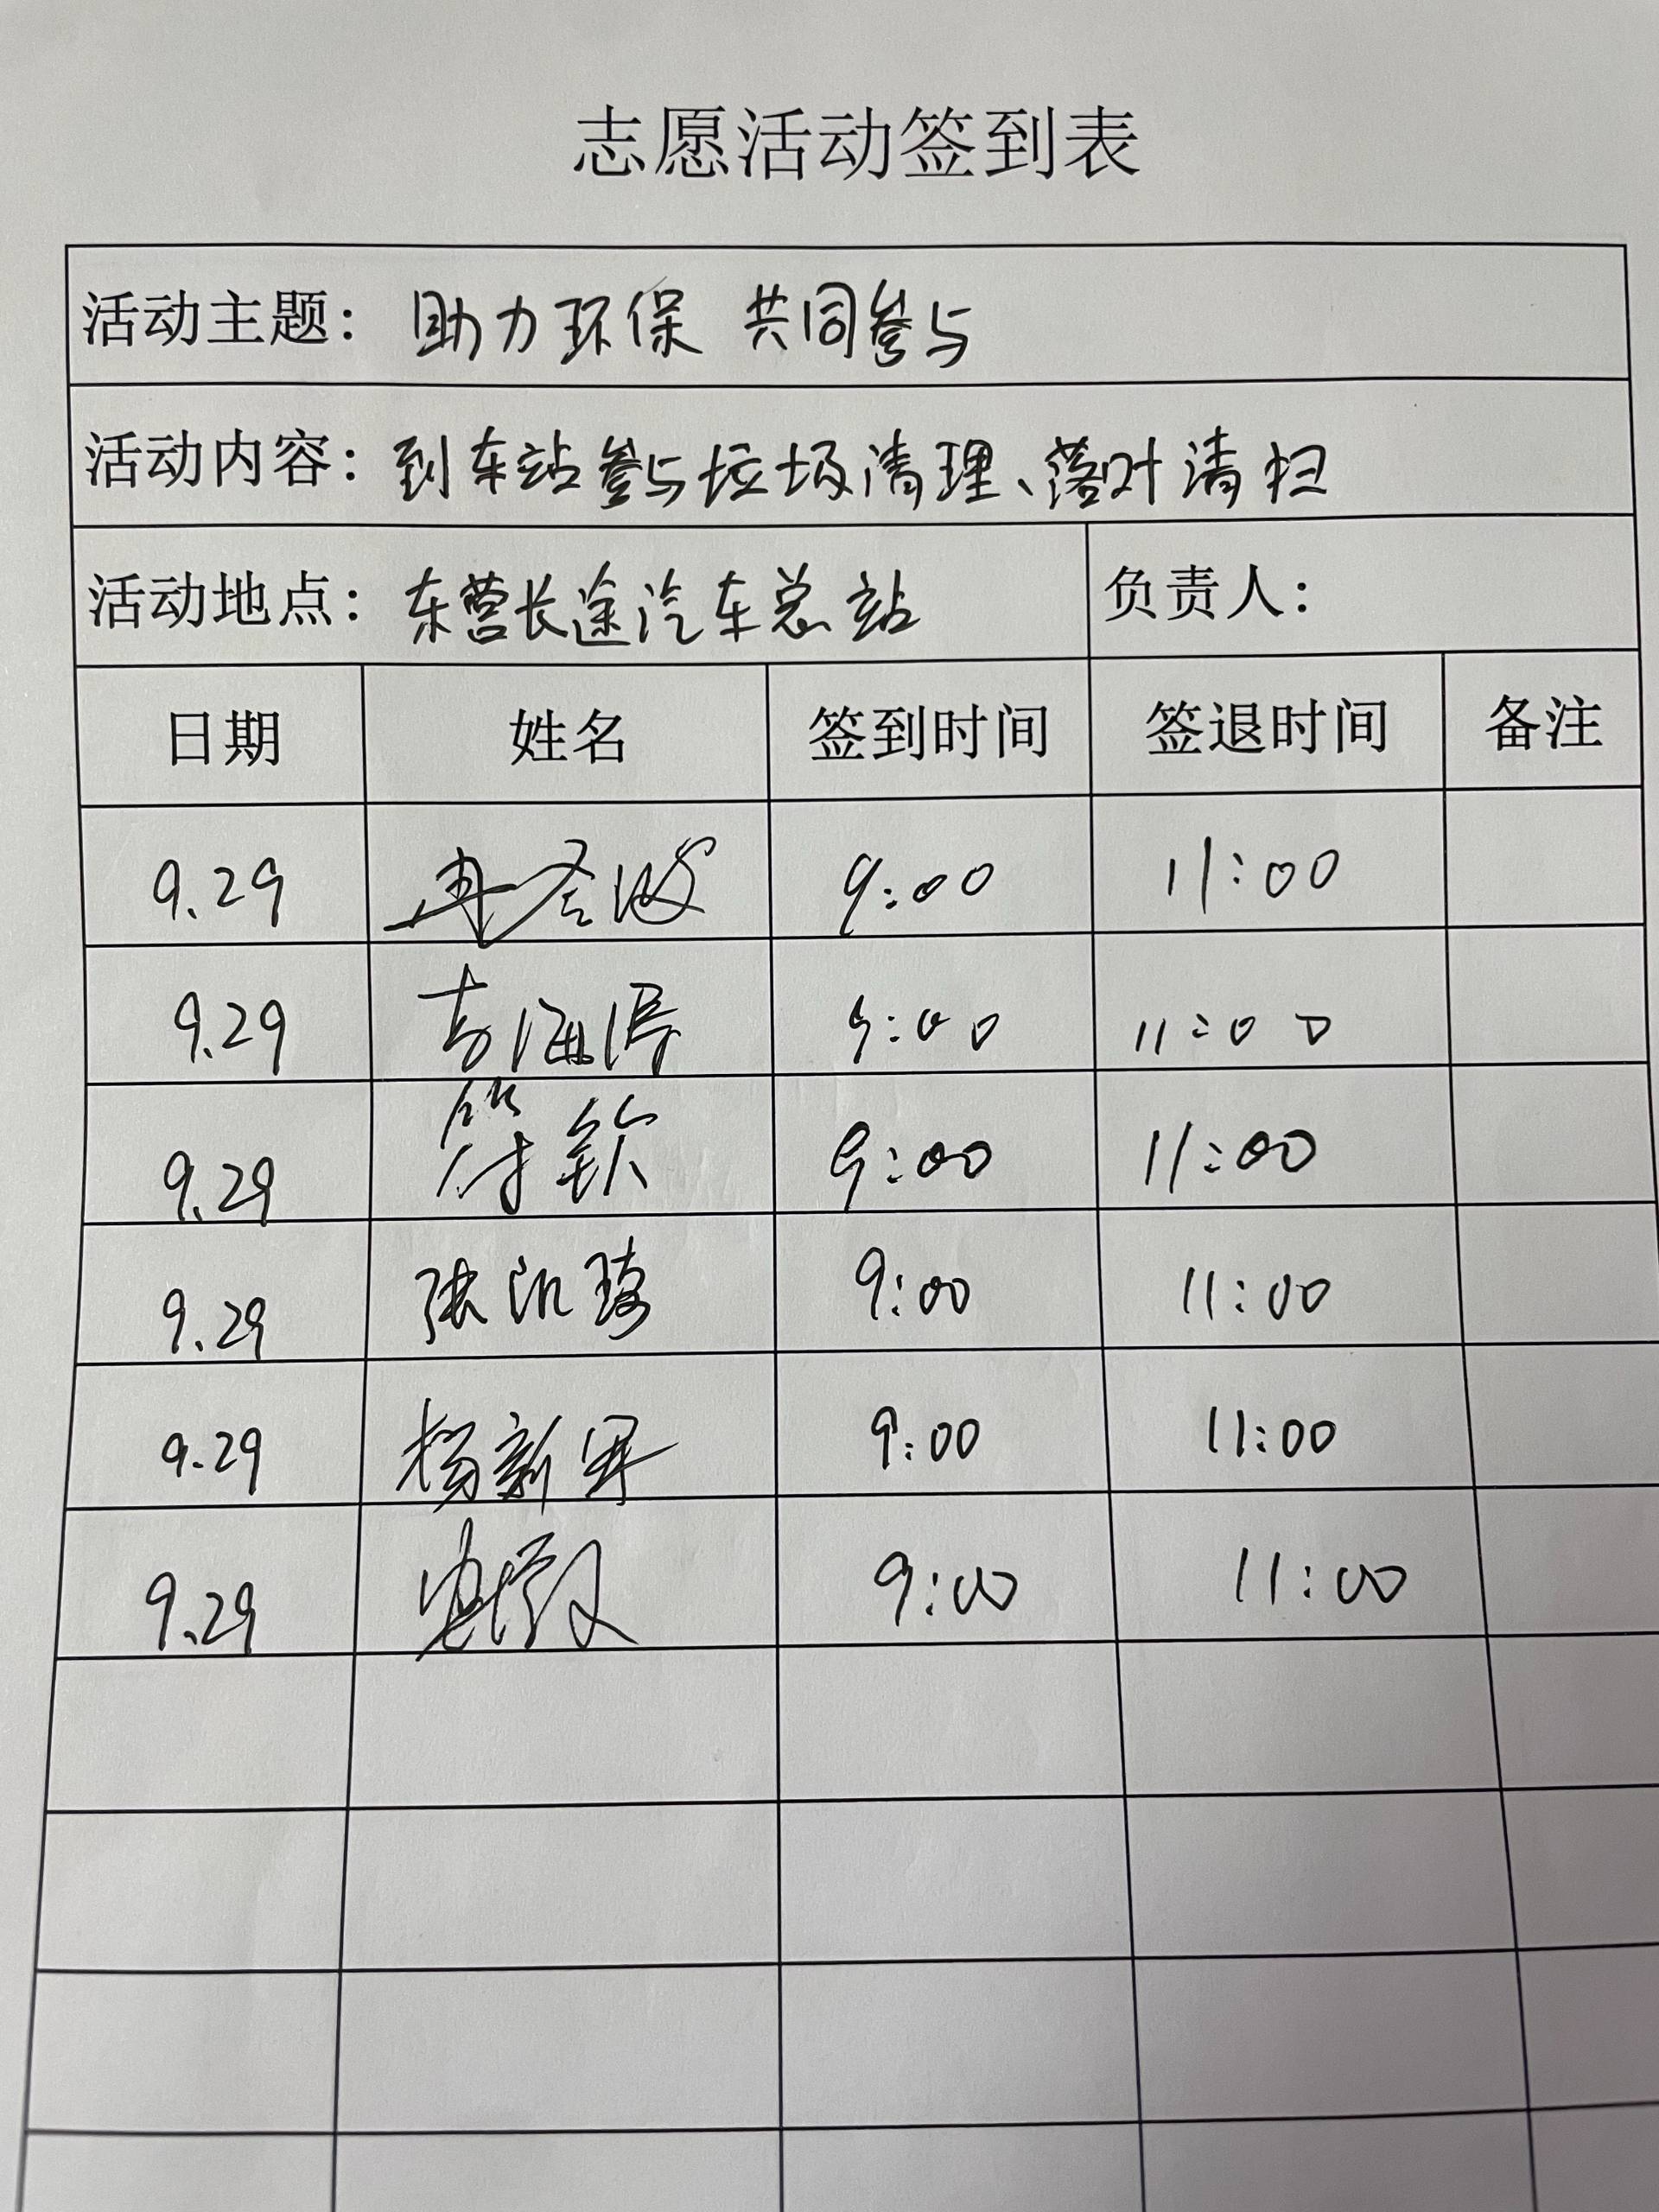 志愿活动签到表
活动主题：助力环保 共同参与
活动内容：到车站参与垃圾清理、落叶清扫
活动地点：东营长途汽车总站 负责人：
日期 姓名 签到时间 签退时间 备注
9.29 9:00 11:00
9.29 9:00 11:00
9.29 符钦 9:00 11:00
9.29 张凯琦 9:00 11:00
9.29 杨新军 9:00 11:00
9.29 9:00 11:00